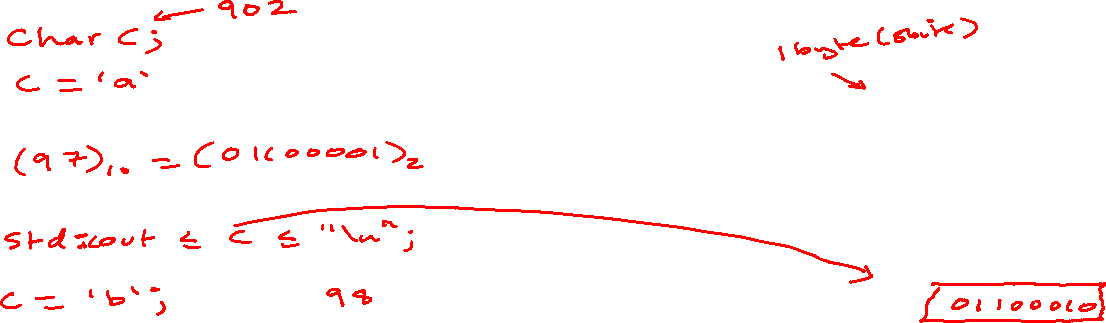 902
char c;
1 byte (8bits)
c = 'a'
(97)₁₀ = (01100001)₂
std::cout ≤ c ≤ "\n";
c = 'b'; 98
01100010